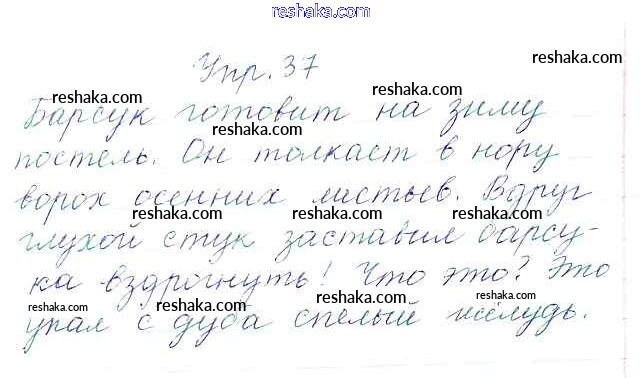 reshaka.com
Упр. 37
reshaka.com
reshaka.com reshaka.com
Барсук готовит на зиму
reshaka.com reshaka.com
постель. Он толкает в нору
reshaka.com
ворох осенних листьев. Вдруг
reshaka.com reshaka.com reshaka.com
глухой стук заставил барсу-
reshaka.com
ка вздрогнуть! Что это? Это
reshaka.com reshaka.com reshaka.com
упал с дуба спелый желудь.